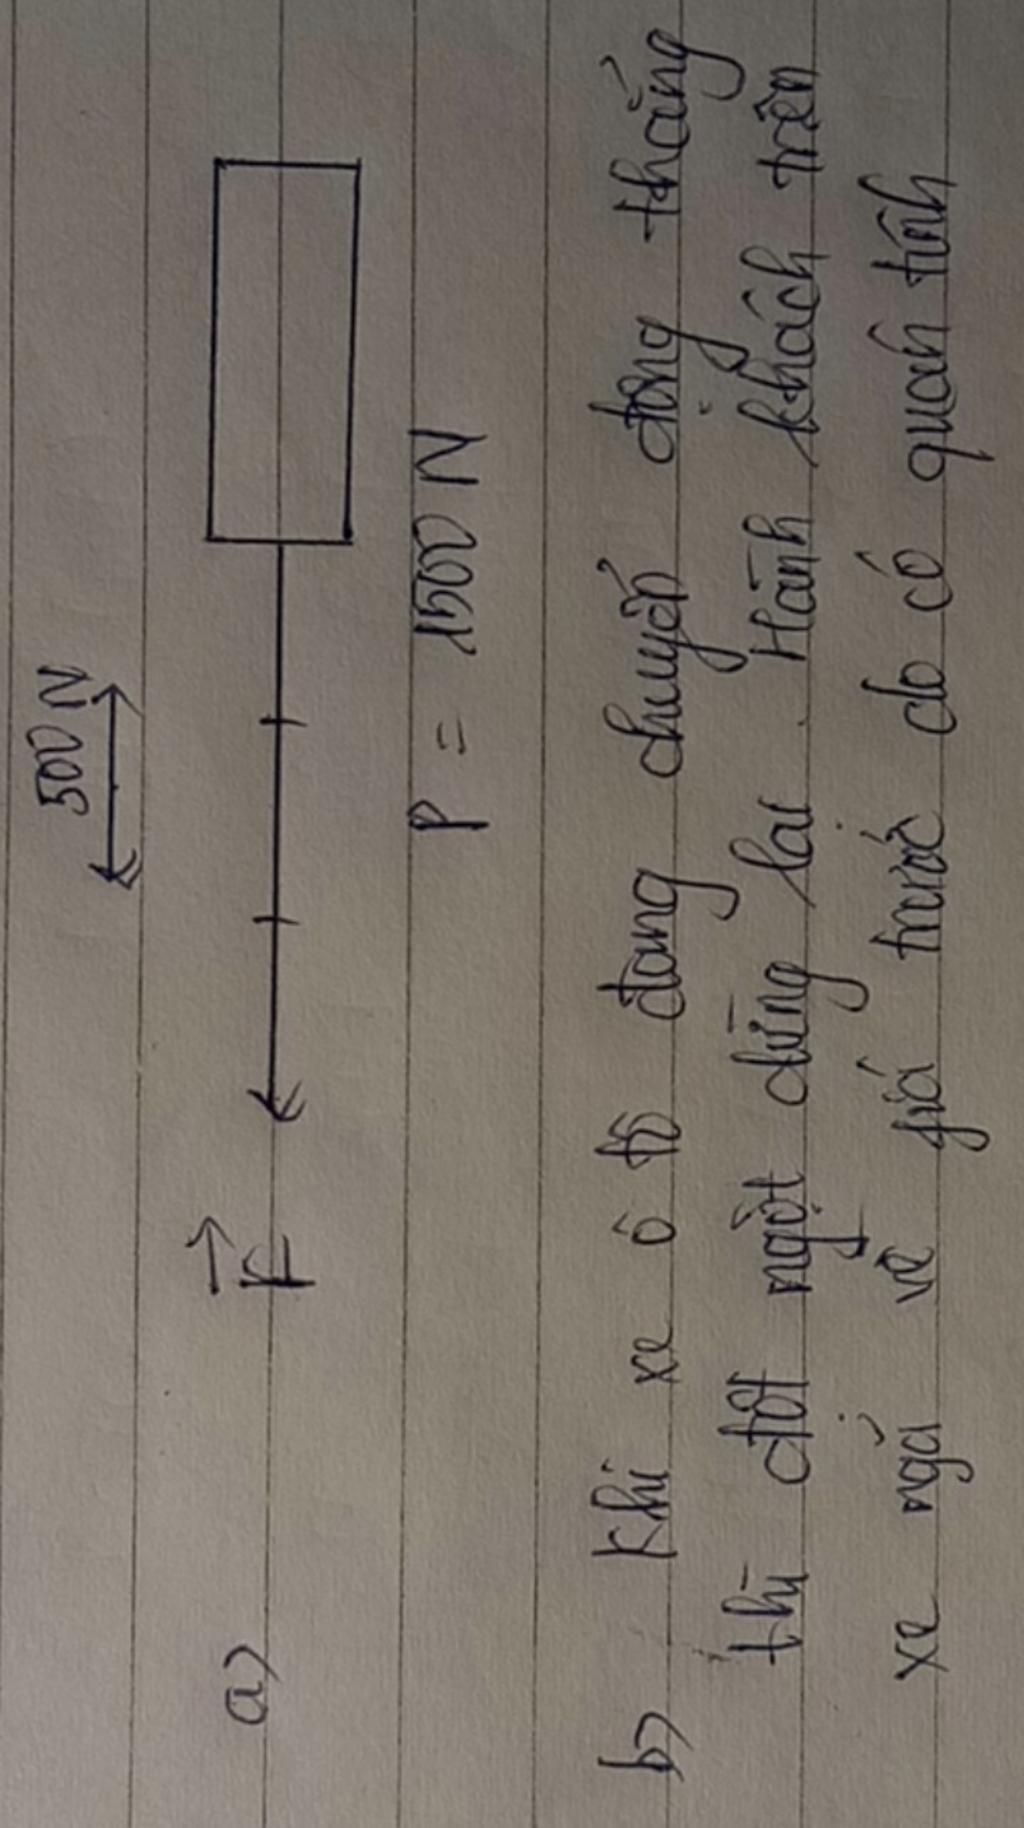 500 N
a) F
P = 1500 N
b) Khi xe ô tô đang chuyển động thẳng
thì đột ngột dừng lại. Hành khách trên
xe ngả về giá trước do có quán tính